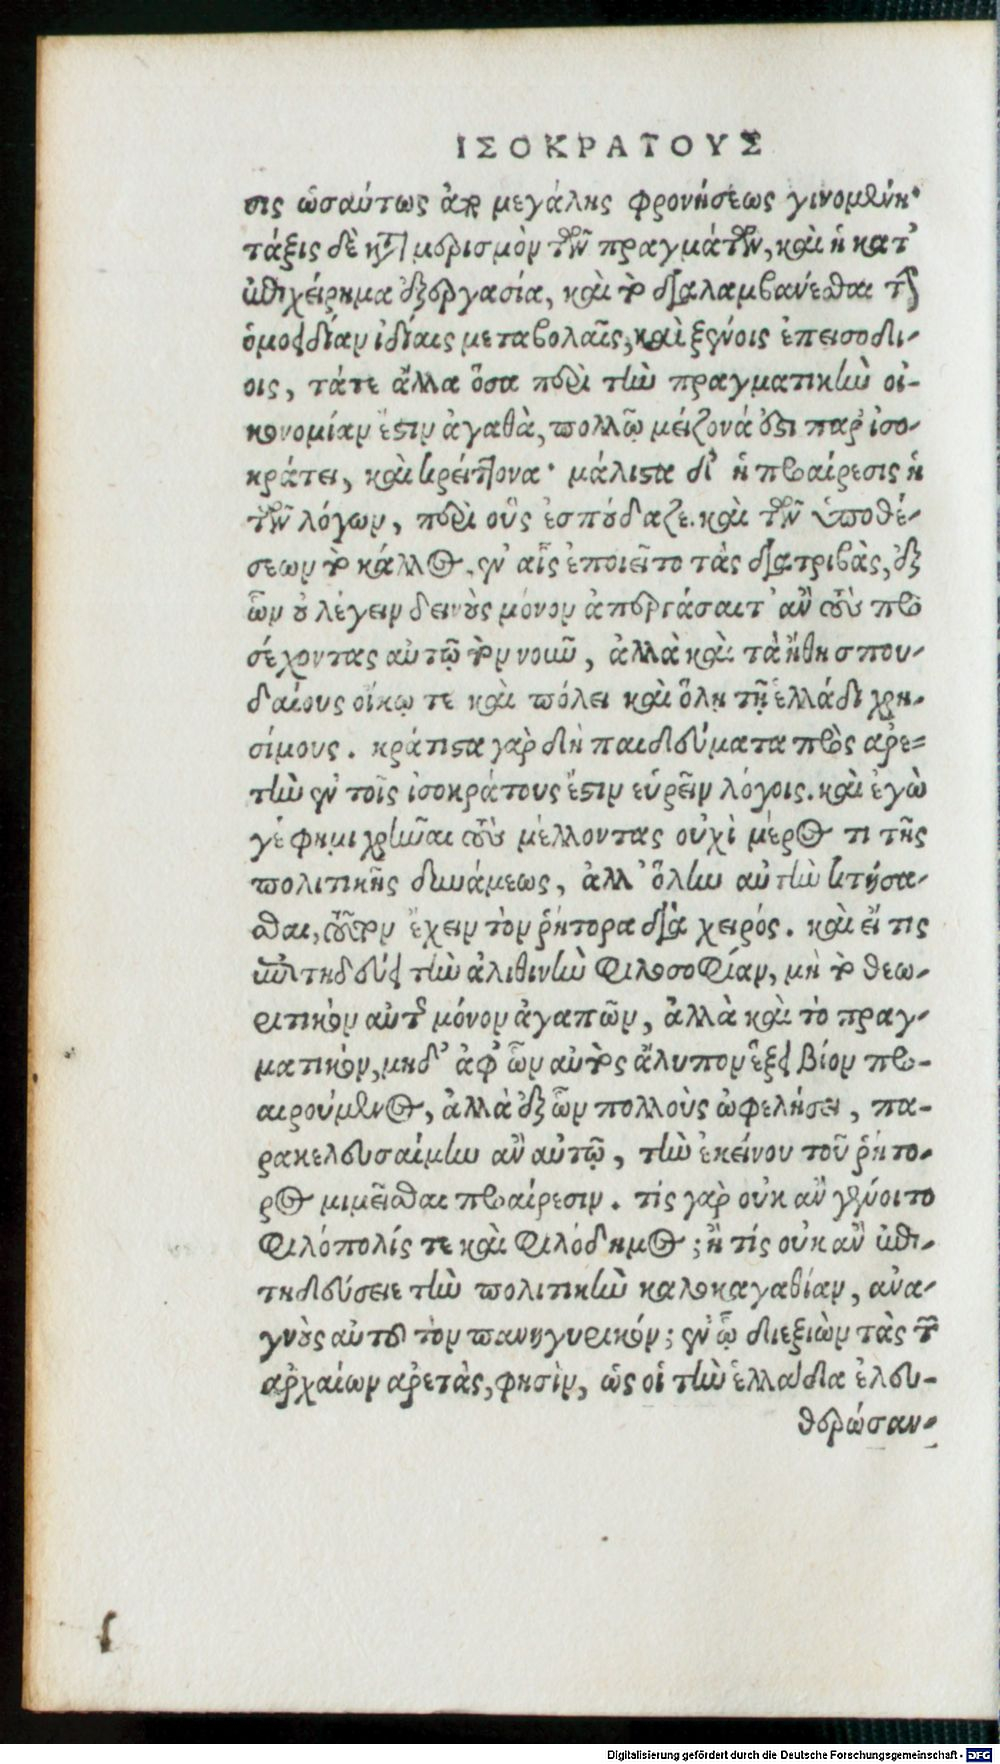 ΙΣΟΚΡΑΤΟΥΣ
σις ὡσαύτως ἀπὸ μεγάλης φρονήσεως γινομένη·
τάξις δὲ καὶ μερισμὸν τῶν πραγμάτων, καὶ ἡ κατ’
ἐπιχείρημα ἐξεργασία, καὶ τὸ διαλαμβάνεσθαι τὴν
ὁμοείδίαν ἰδίαις μεταβολαῖς, καὶ ξένοις ἐπεισοδί-
οις, τά τε ἄλλα ὅσα περὶ τὴν πραγματικὴν οἰ-
κονομίαν ἔστιν ἀγαθὰ, πολλῷ μείζονά ἐστι παρ’ ἰσο-
κράτει, καὶ κρείττονα· μάλιστα δ’ ἡ προαίρεσις ἡ
τῶν λόγων, περὶ οὓς ἐσπούδαζε. καὶ τῶν ὑποθέ-
σεων τὸ κάλλος. ἐν αἷς ἐποιεῖτο τὰς διατριβὰς, ἐξ
ὧν οὐ λέγειν δεινοὺς μόνον ἀπεργάσαιτ’ ἂν τοὺς προ
σέχοντας αὐτῷ τὸν νοῦν, ἀλλὰ καὶ τὰ ἤθη σπου-
δαίους οἴκῳ τε καὶ πόλει καὶ ὅλῃ τῇ ἑλλάδι χρη-
σίμους. κράτιστα γὰρ δὴ παιδεύματα πρὸς ἀρε-
τὴν ἐν τοῖς ἰσοκράτους ἔστιν εὑρεῖν λόγοις. καὶ ἐγὼ
γέ φημι χρῆναι τοὺς μέλλοντας οὐχὶ μέρος τι τῆς
πολιτικῆς δυνάμεως, ἀλλ’ ὅλην αὐτὴν κτήσα-
σθαι, τοῦτον ἔχειν τὸν ῥήτορα διὰ χειρός. καὶ εἴ τις
ἐπιτηδεύει τὴν ἀλιθινὴν φιλοσοφίαν, μὴ τὸ θεω-
ριτικὸν αὐτῆς μόνον ἀγαπῶν, ἀλλὰ καὶ τὸ πραγ-
ματικὸν, μηδ’ ἀφ’ ὧν αὐτὸς ἄλυπον ἕξει βίον προ-
αιρούμενος, ἀλλὰ ἐξ ὧν πολλοὺς ὠφελήσει, πα-
ρακελευσαίμην ἂν αὐτῷ, τὴν ἐκείνου τοῦ ῥήτο-
ρος μιμεῖσθαι προαίρεσιν. τίς γὰρ οὐκ ἂν γένοιτο
φιλόπολίς τε καὶ φιλόδημος; ἢ τίς οὐκ ἂν ἐπι-
τηδεύσειε τὴν πολιτικὴν καλοκαγαθίαν, ἀνα-
γνοὺς αὐτοῦ τὸν πανηγυρικόν; ἐν ᾧ διεξιὼν τὰς τῶν
ἀρχαίων ἀρετὰς, φησὶν, ὡς οἱ τὴν ἑλλάδα ἐλευ-
θερώσαν-